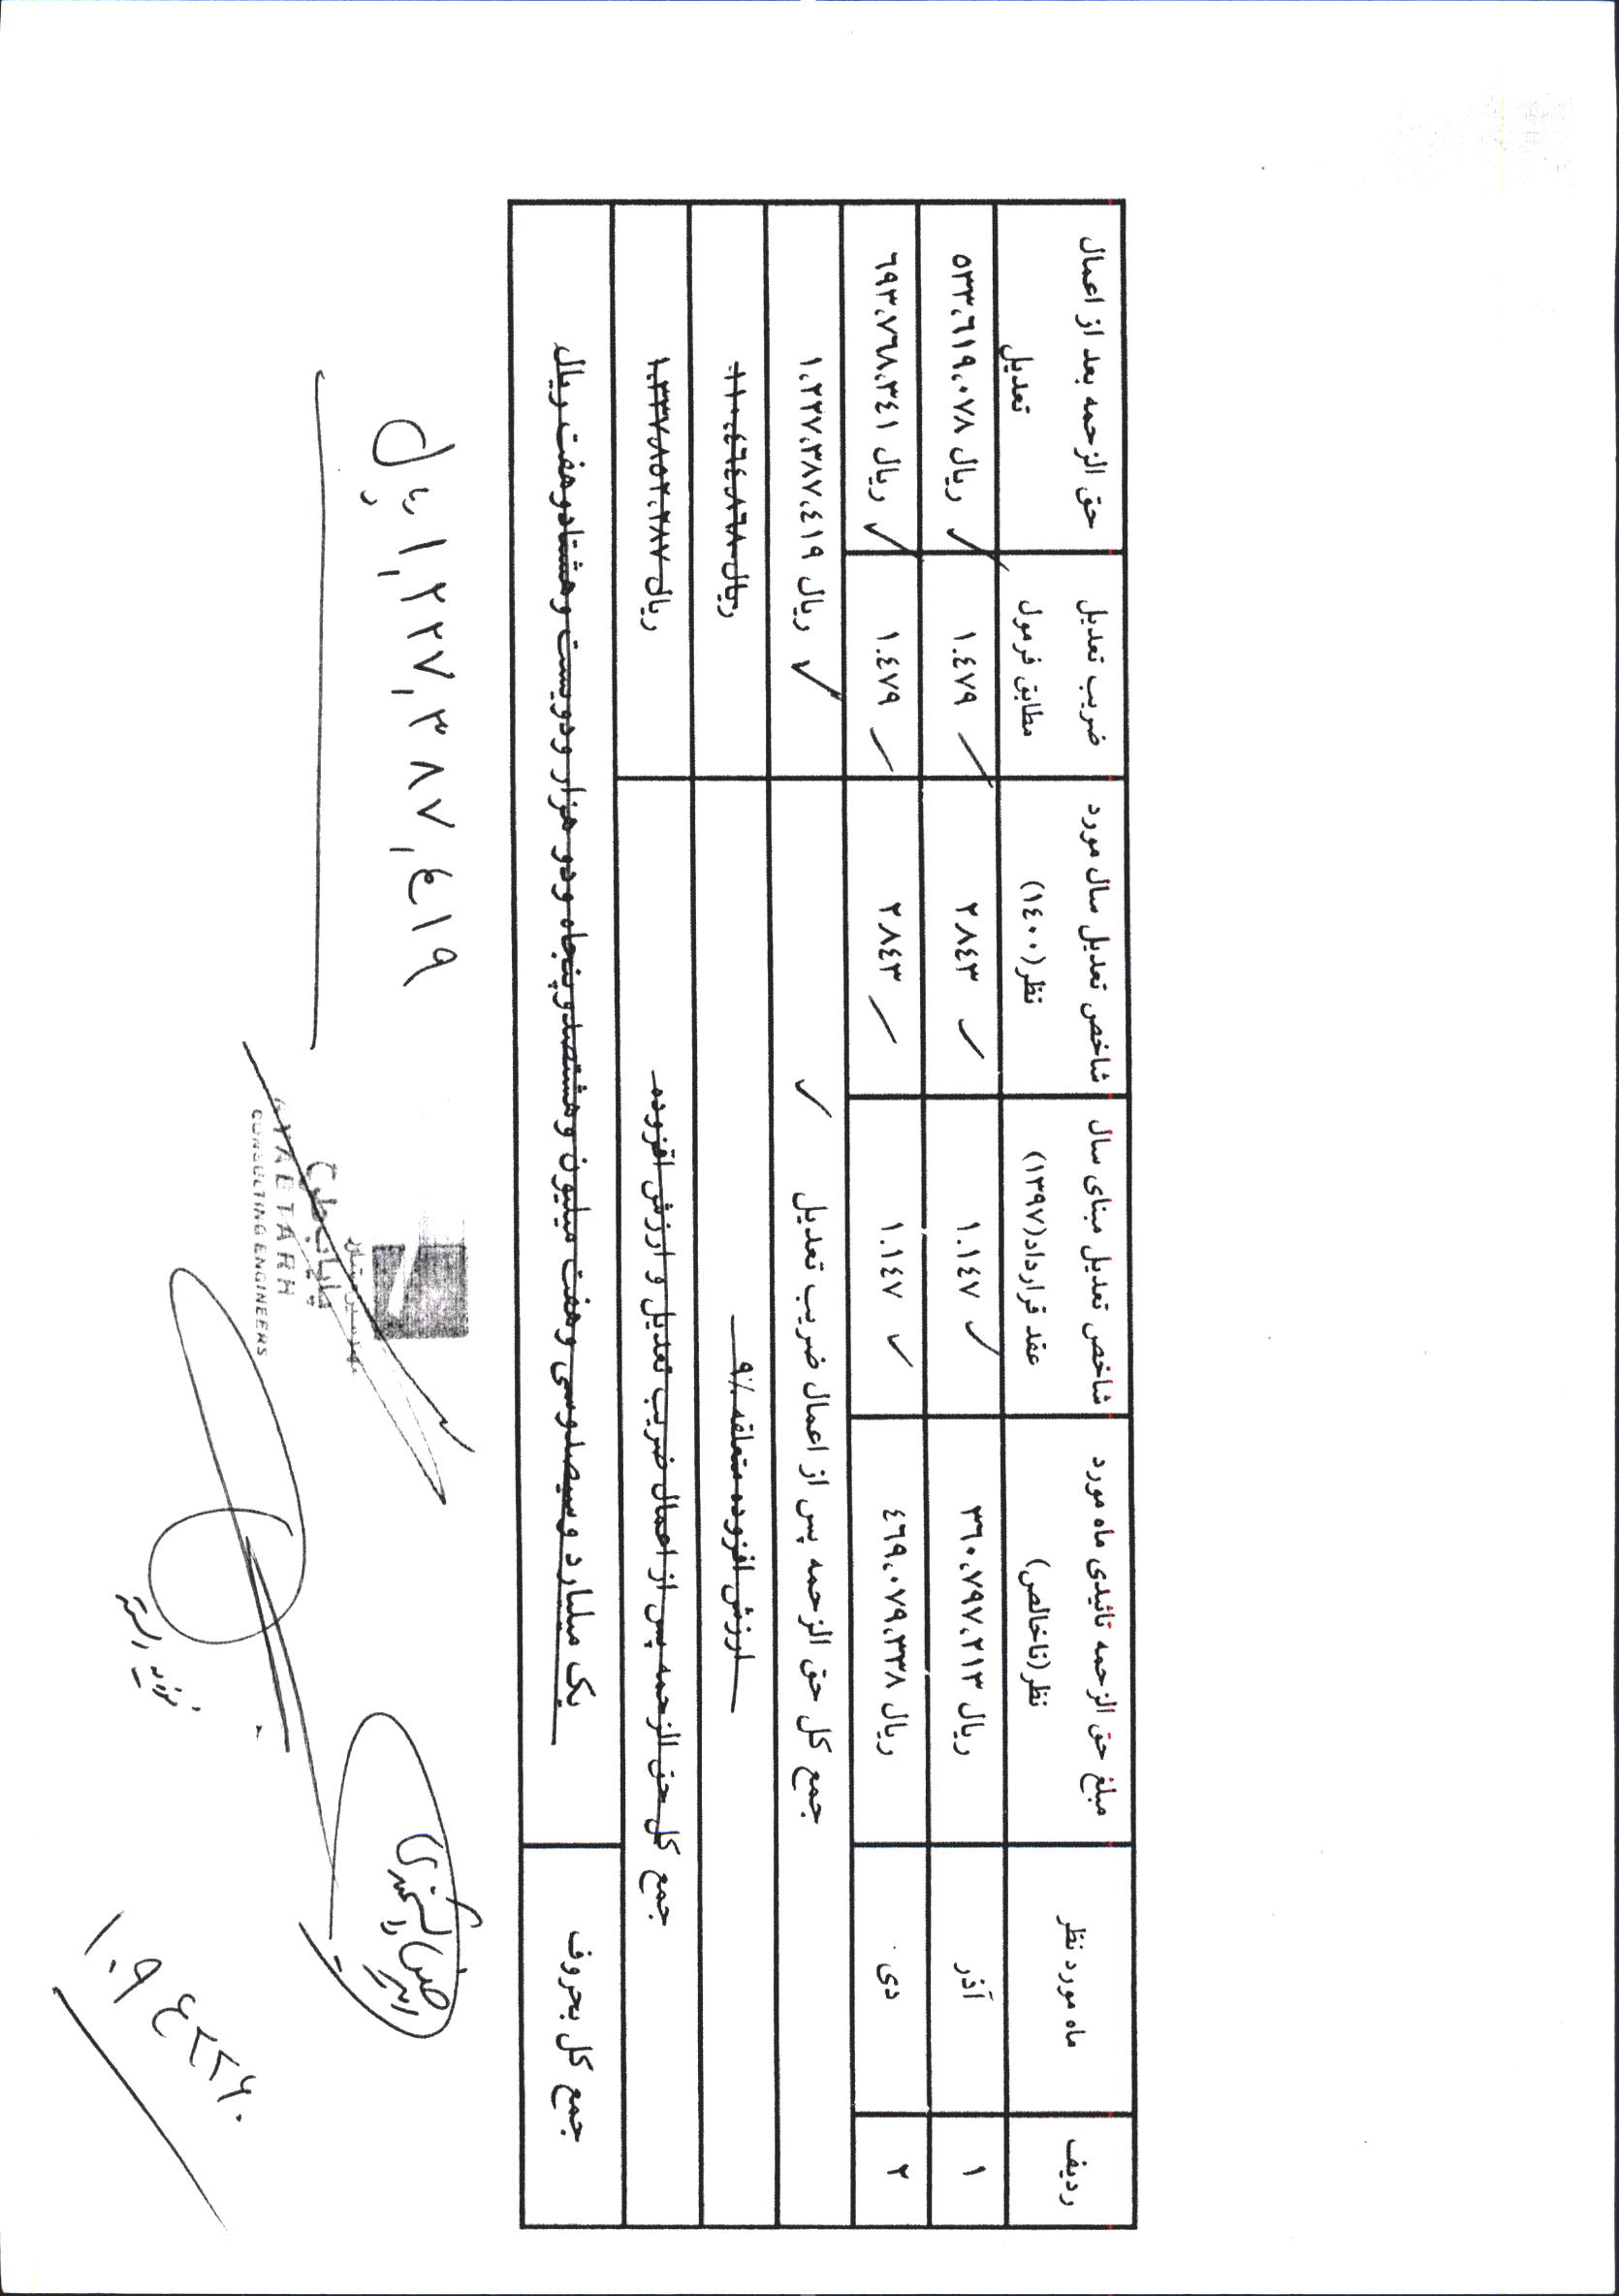 ردیف ماه مورد نظر مبلغ حق الزحمه تائیدی ماه مورد نظر(ناخالص) شاخص تعدیل مبنای سال عقد قرارداد(۱۳۹۷) شاخص تعدیل سال مورد نظر(۱۴۰۰) ضریب تعدیل مطابق فرمول حق الزحمه بعد از اعمال تعدیل
۱ آذر ریال ۳۶۰،۷۹۷،۲۱۳ ۱.۱۴۷ ۲۸۴۳ ۱.۴۷۹ ریال ۵۳۳،۶۱۹،۰۷۸
۲ دی ریال ۴۶۹،۰۷۹،۳۳۸ ۱.۱۴۷ ۲۸۴۳ ۱.۴۷۹ ریال ۶۹۳،۷۶۸،۳۴۱
جمع کل حق الزحمه پس از اعمال ضریب تعدیل ریال ۱،۲۲۷،۳۸۷،۴۱۹
ارزش افزوده متعلقه ۹٪ ریال ۱۱۰،۴۶۴،۸۶۸
جمع کل حق الزحمه پس از اعمال ضریب تعدیل و ارزش افزوده ریال ۱،۳۳۷،۸۵۲،۲۸۷
جمع کل بحروف یک میلیارد وسیصدوسی وهفت میلیون وهشتصدوپنجاه ودو هزار ودویست وهشتادوهفت ریال
۱,۲۲۷,۳۸۷,۴۱۹ ریال
مهندسین مشاور
پایاب طرح
CONSULTING ENGINEERS